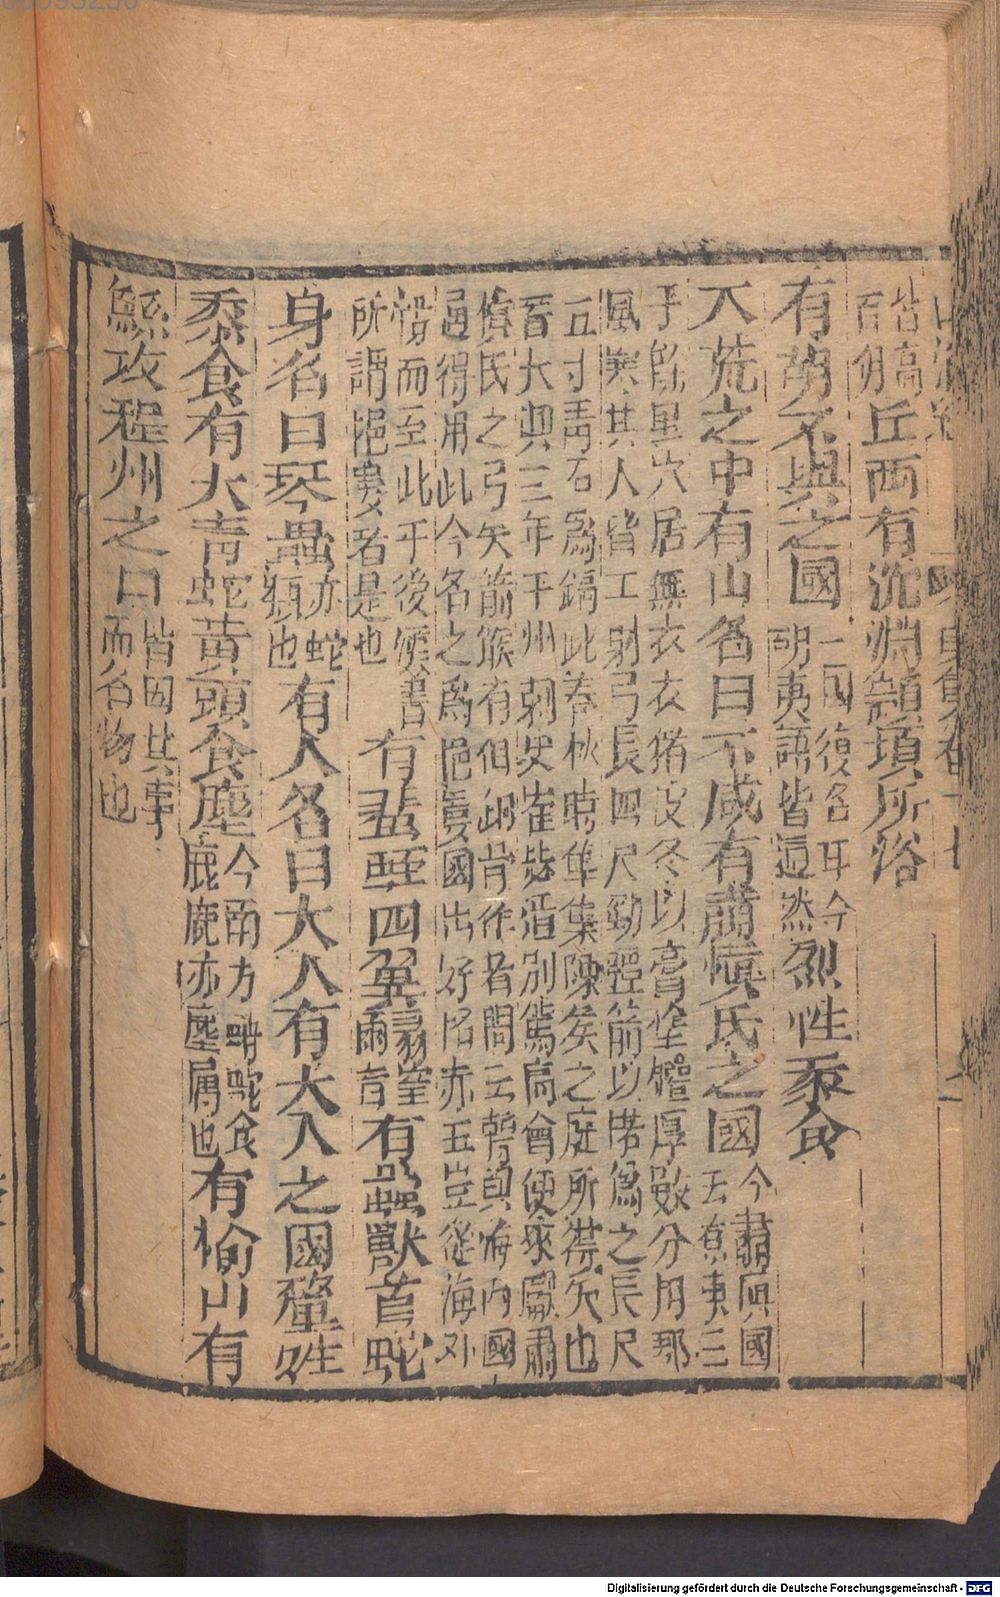 皆高
百仞
丘西有沉淵顓頊所浴
有胡不與之國
一國復名耳今
胡夷語皆通然
烈性黍食
大荒之中有山名曰不咸有肅愼氏之國
今肅愼國
去遼東三
千餘里穴居無衣衣猪皮冬以膏塗體厚數分用郤
風寒其人皆工射弓長四尺勁彊箭以楛爲之長尺
五寸靑石爲鏑此春秋時隼集陳侯之庭所得矢也
晉大興三年平州刺史崔毖遣別駕高會使來獻肅
愼氏之弓矢箭鏃有似銅骨作者問云轉與海內國
通得用此今名之爲挹婁國出好貂赤玉豈從海外
轉而至此乎後漢書
所謂挹婁者是也
有蜚蛭四翼
翡窒
兩音
有蟲獸首蛇
身名曰琴蟲
亦蛇
類也
有人名曰大人有大人之國釐姓
黍食有大靑蛇黃頭食麈
今南方蚺蛇食
鹿鹿亦麈屬也
有榆山有
鯀攻程州之山
皆因其事
而名物也
Digitalisierung gefördert durch die Deutsche Forschungsgemeinschaft - DFG